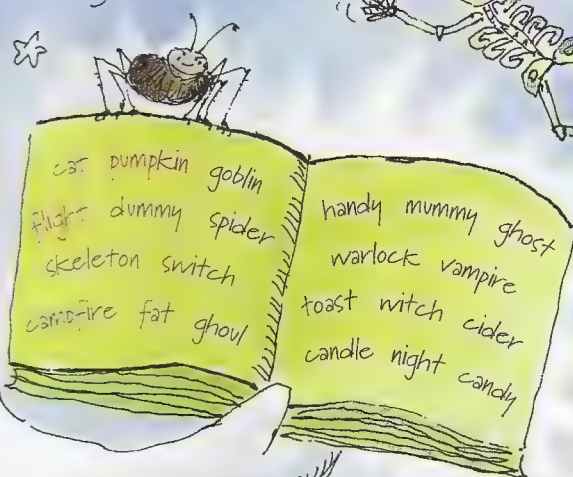 cat pumpkin goblin
flight dummy spider
skeleton switch
campfire fat ghoul
handy mummy ghost
warlock vampire
toast witch cider
candle night candy